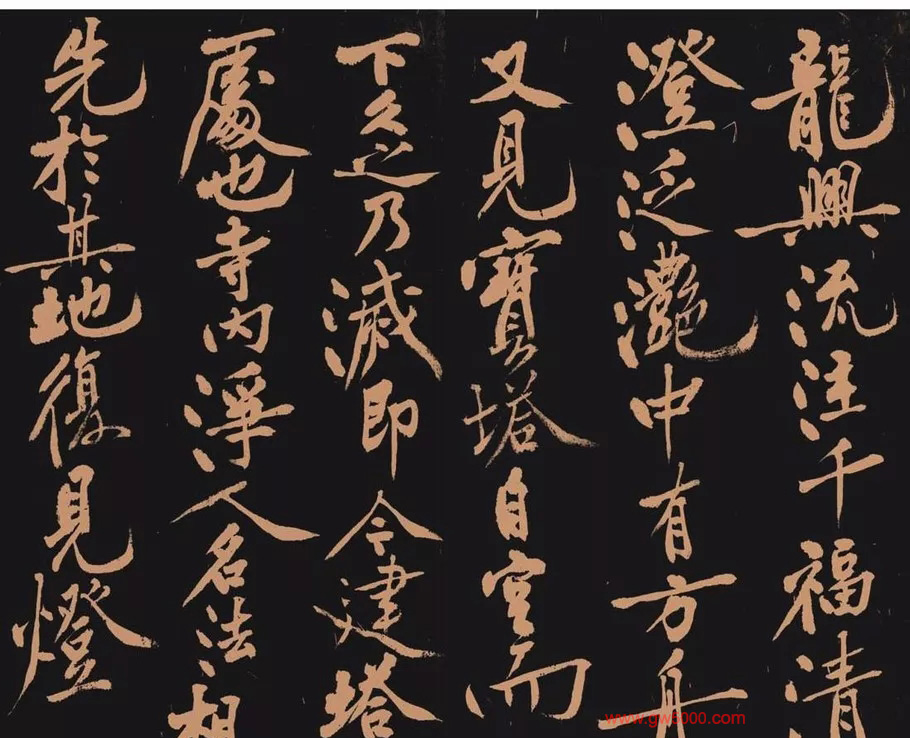 龍興流注千福清
澄泛灩中有方舟
又見寶塔自空而
下久之乃滅即今建塔
處也寺内淨人名法相
先於其地復見燈
www.gw8000.com